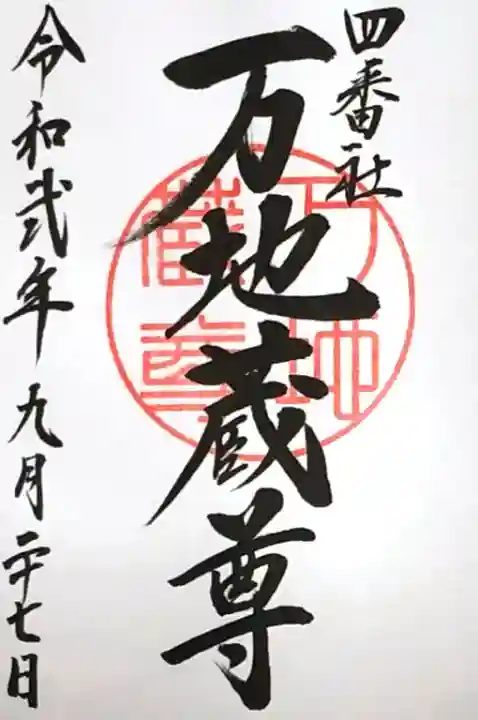 四番社
万地蔵尊
万地蔵尊
令和弐年九月二十七日